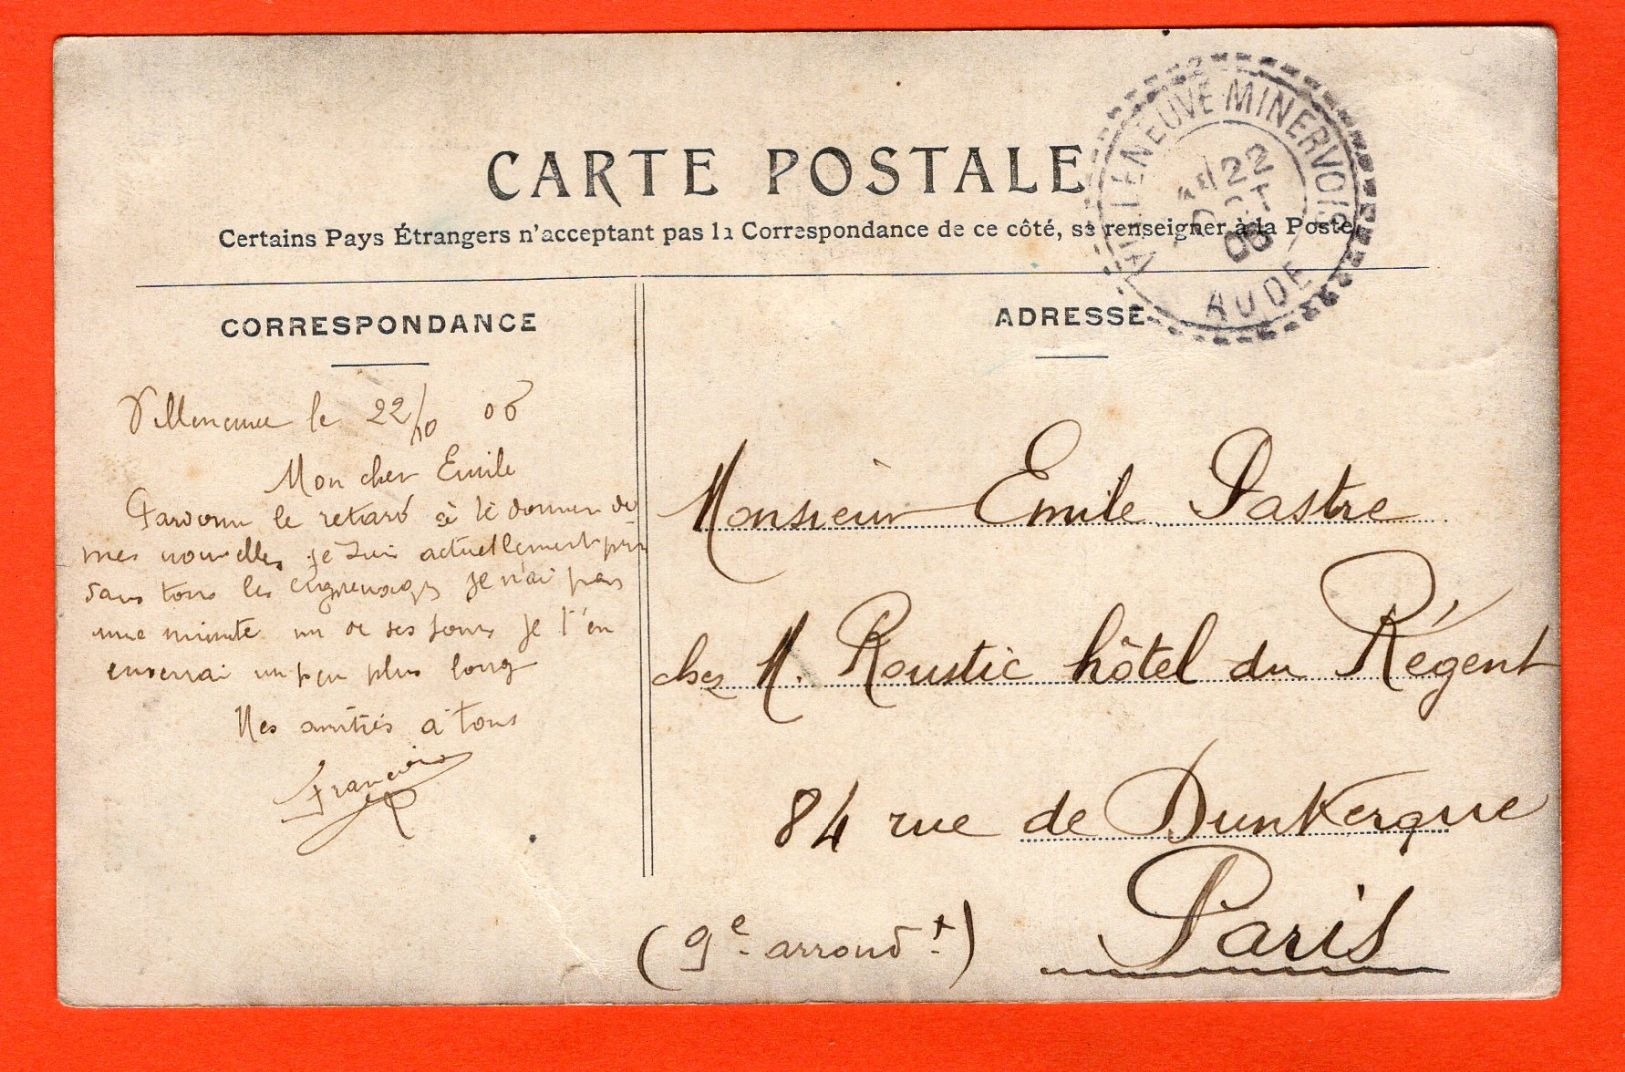 CARTE POSTALE
Certains Pays Étrangers n'acceptant pas la Correspondance de ce côté, se renseigner à la Poste
VILLENEUVE-MINERVOIS
22
OCT
06
AUDE
CORRESPONDANCE
Villeneuve le 22/10 06
Mon cher Emile
Pardonne le retard à te donner de
mes nouvelles, je suis actuellement pris
dans tous les engrenages je n'ai pas
une minute un de ses jours je t'en
enverrai un peu plus long
Mes amitiés à tous
François
ADRESSE
Monsieur Emile Pastre
chez M. Roustic hôtel du Régent
84 rue de Dunkerque
Paris
(9e arrondt)